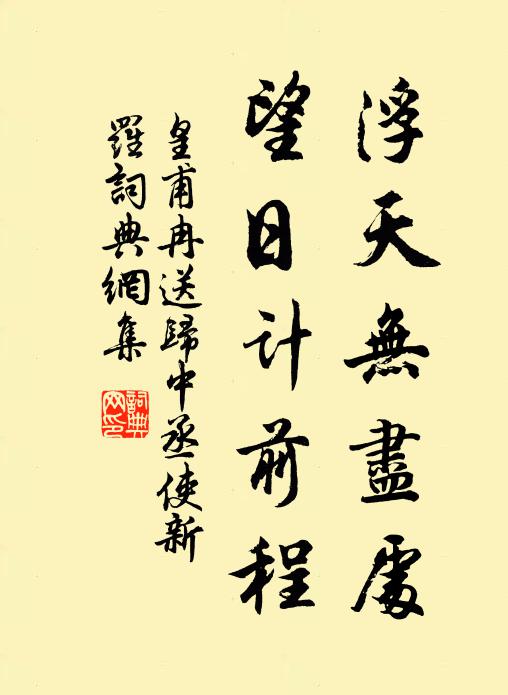 浮天無盡處
望日計前程
皇甫冉送歸中丞使新
羅詞典網集
詞典
网印